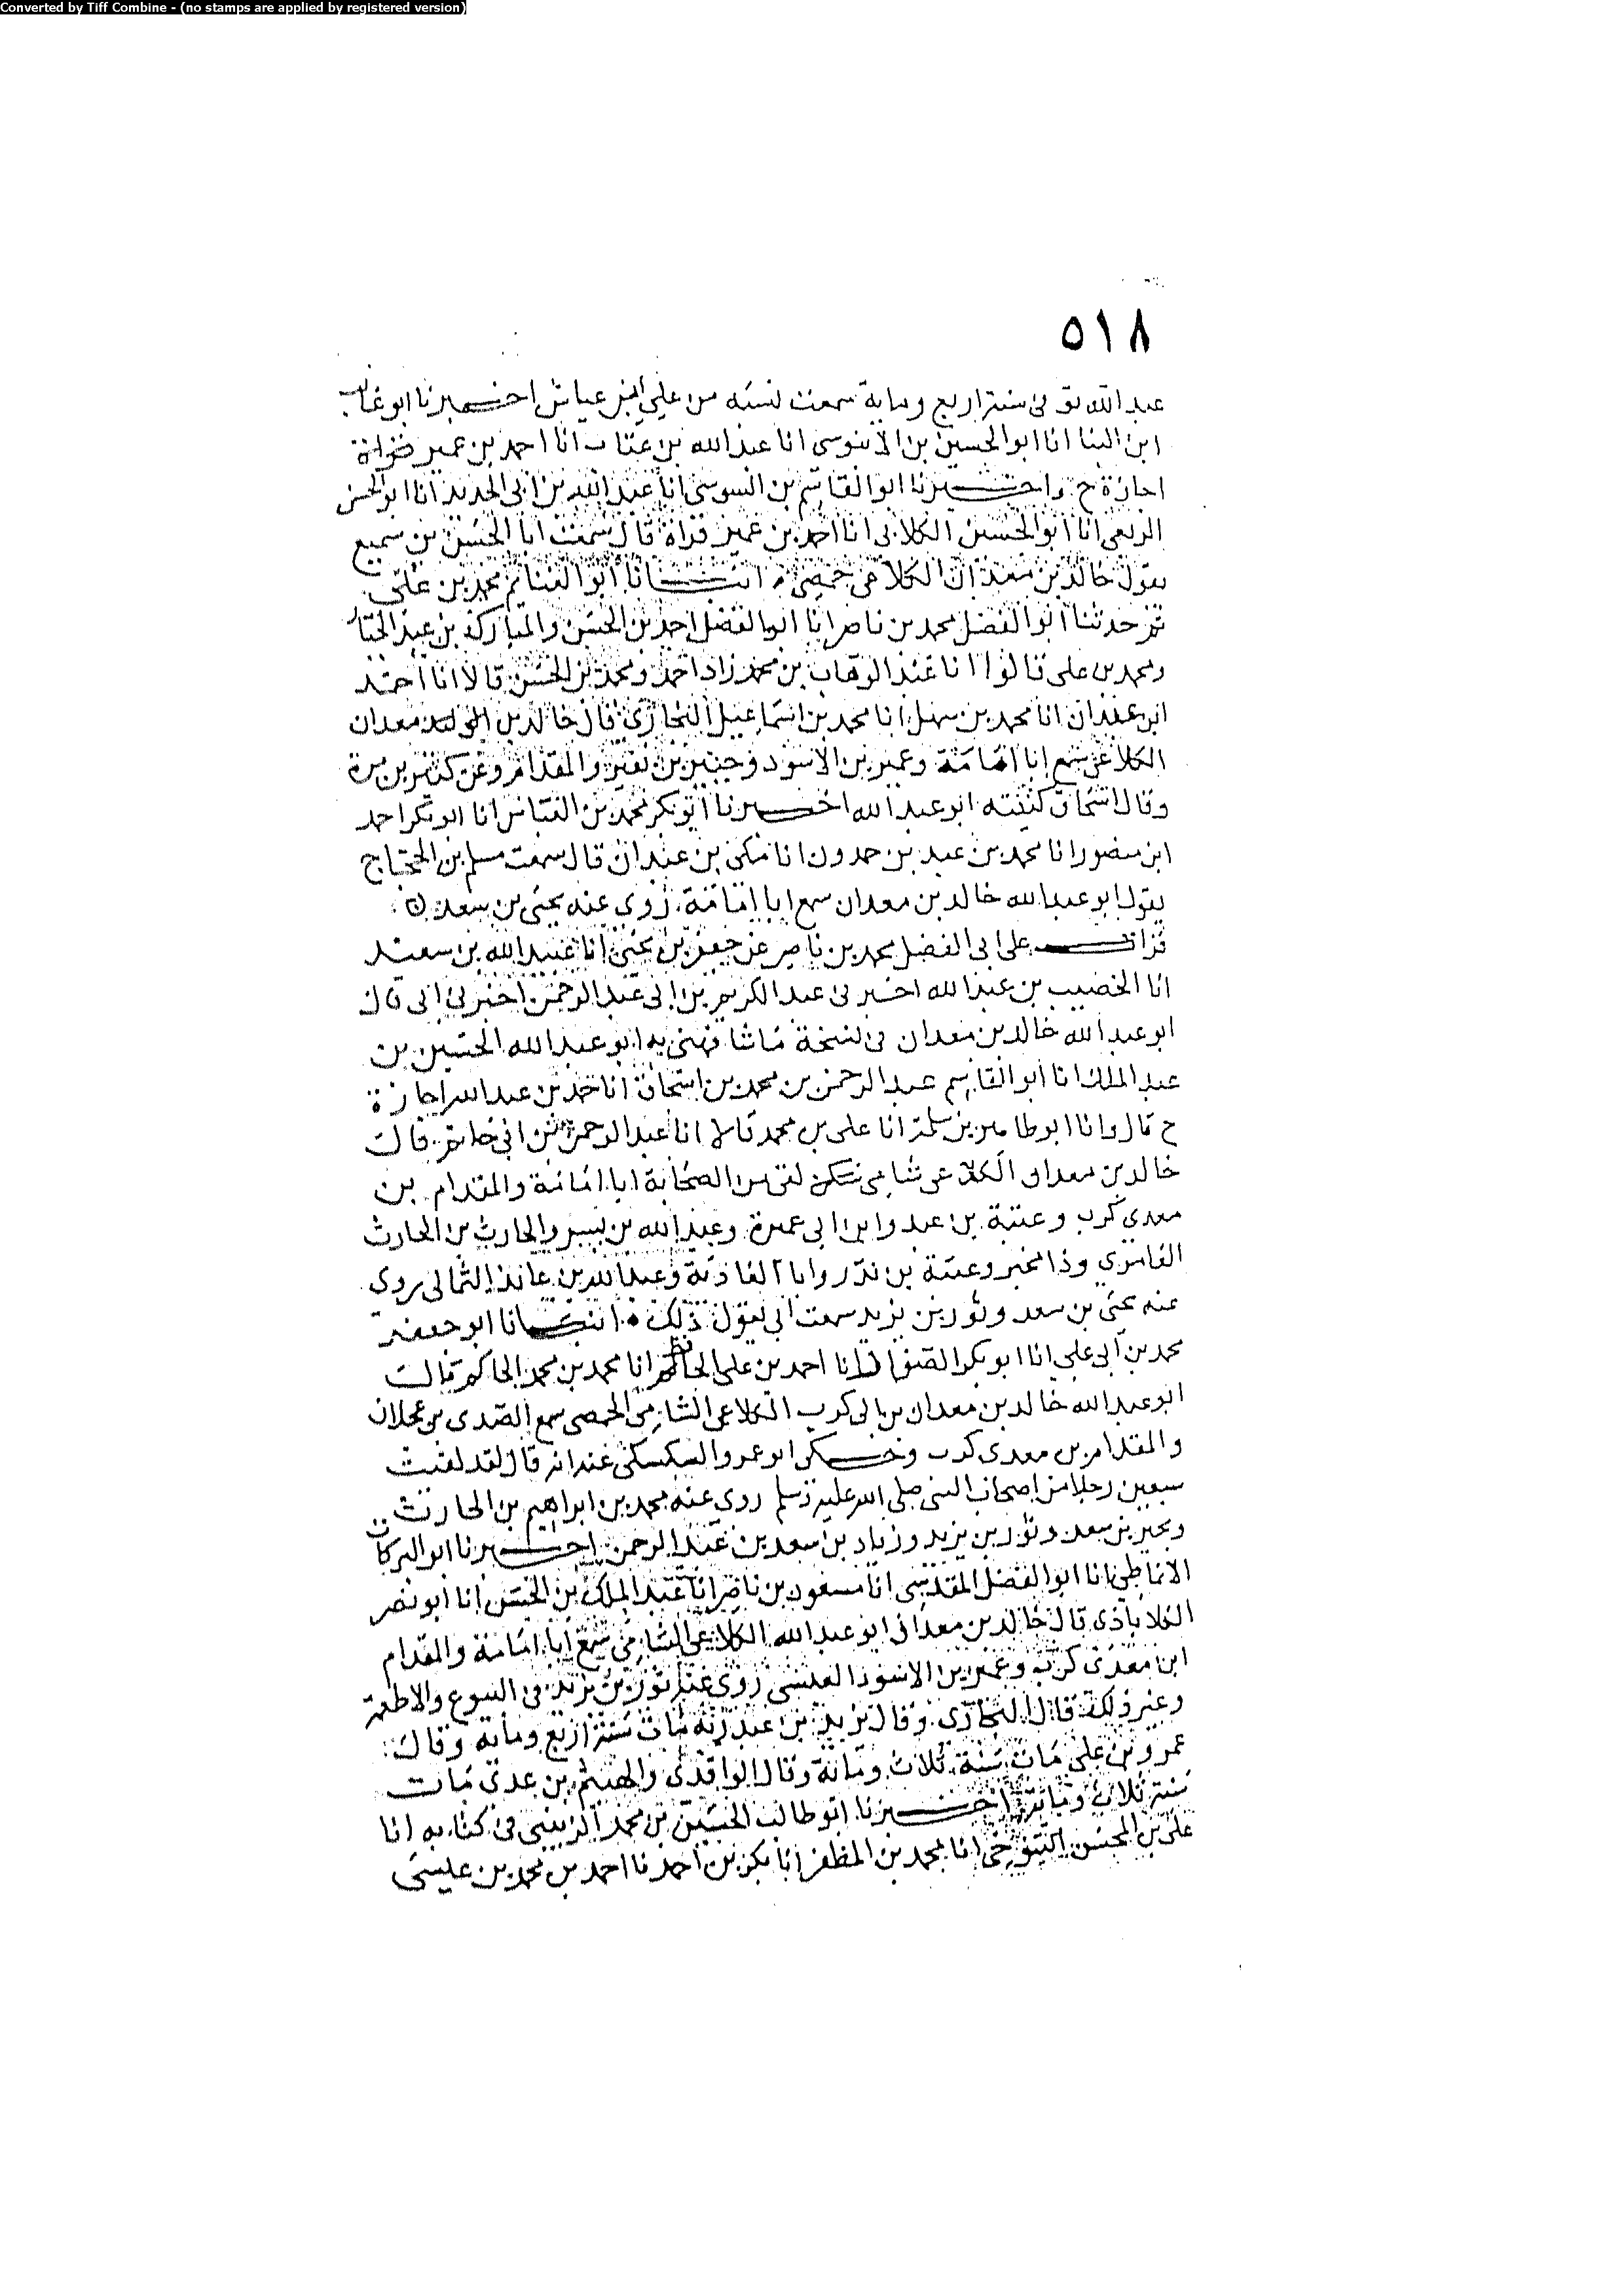 Converted by Tiff Combine - (no stamps are applied by registered version)
٥١٨
عبد الله توفى سنة اربع وماية سمعت نسبه من علي بن عياش اخبرنا ابو غالب
ابن البنا انا ابو الحسين بن الآبنوسى انا عبد الله بن عتاب انا احمد بن عمير
اجازة ح واخبرنا ابو القاسم بن السوسى انا عبد الله بن ابى الحديد انا ابو الحسن
الربعى انا ابو الحسين الكلابى انا احمد بن عمير قراة قال سمعت ابا الحسن بن سميع
يقول خالد بن معدان الكلاعى حمصى انبانا ابو الغنائم محمد بن على
ثم حدثنا ابو الفضل محمد بن ناصر انا ابو الفضل احمد بن الحسن والمبارك بن عبد الجبار
ومحمد بن على قالوا انا عبد الوهاب بن محمد زاد احمد ومحمد بن الحسن قالا انا احمد
ابن عبدان انا محمد بن سهل انا محمد بن اسماعيل البخارى قال خالد بن معدان
الكلاعى سمع ابا امامة وعمير بن الاسود وجبير بن نفير والمقدام وعن كثير بن مرة
وقال اسحاق كنيته ابو عبد الله اخبرنا ابو بكر محمد بن العباس انا ابو بكر احمد
ابن منصور انا محمد بن عبد بن حمدون انا مكى بن عبدان قال سمعت مسلم بن الحجاج
يقول ابو عبد الله خالد بن معدان سمع ابا امامة روى عنه بحير بن سعد
قرات على ابى الفضل محمد بن ناصر عن جعفر بن يحيى انا عبيد الله بن سعيد
انا الخصيب بن عبد الله اخبرنى عبد الكريم بن ابى عبد الرحمن اخبرنى ابى قال
ابو عبد الله خالد بن معدان فى نسخة ابو عبد الله الحسين بن
عبد الملك انا ابو القاسم عبد الرحمن بن محمد بن اسحاق انا حمد بن عبد الله اجازة
ح قال وانا ابو طاهر بن سلمة انا على بن محمد قالا انا عبد الرحمن بن ابى حاتم قال
خالد بن معدان الكلاعى شامى لقى من الصحابة ابا امامة والمقدام بن
معدى كرب وعتبة بن عبد وابن ابى عميرة وعبد الله بن بسر والحارث بن الحارث
الغامدى وذا مخبر وعتبة بن ندر وابا الغادية وعبد الله بن عائذ الثمالى روى
عنه بحير بن سعد وثور بن يزيد سمعت ابى يقول ذلك انبانا ابو جعفر
محمد بن ابى على انا ابو بكر الصفار انا احمد بن على الحافظ انا محمد بن محمد الحاكم قال
ابو عبد الله خالد بن معدان بن ابى كرب الكلاعى الشامى الحمصى سمع الصدى بن عجلان
والمقدام بن معدى كرب وحكى ابو عمرو السكسكى عنه انه قال لقد لقيت
سبعين رجلا من اصحاب النبى صلى الله عليه وسلم روى عنه محمد بن ابراهيم بن الحارث
وبحير بن سعد وثور بن يزيد وزياد بن سعد بن عبد الرحمن اخبرنا ابو البركات
الانماطى انا ابو الفضل المقدسى انا مسعود بن ناصر انا عبد الملك بن الحسن انا ابو نصر
الكلاباذى قال خالد بن معدان ابو عبد الله الكلاعى الشامى سمع ابا امامة والمقدام
ابن معدى كرب وعمير بن الاسود العنسى روى عنه ثور بن يزيد فى البيوع والاطعمة
وغير ذلك قال البخارى وقال يزيد بن عبد ربه مات سنة اربع ومائة وقال
عمرو بن على مات سنة ثلاث ومائة وقال الواقدى والهيثم بن عدى مات
سنة ثلاث ومائة اخبرنا ابو طالب الحسين بن محمد الزينبى فى كتابه انا
على بن المحسن التنوخى انا محمد بن المظفر انا بكر بن احمد نا احمد بن محمد بن عيسى